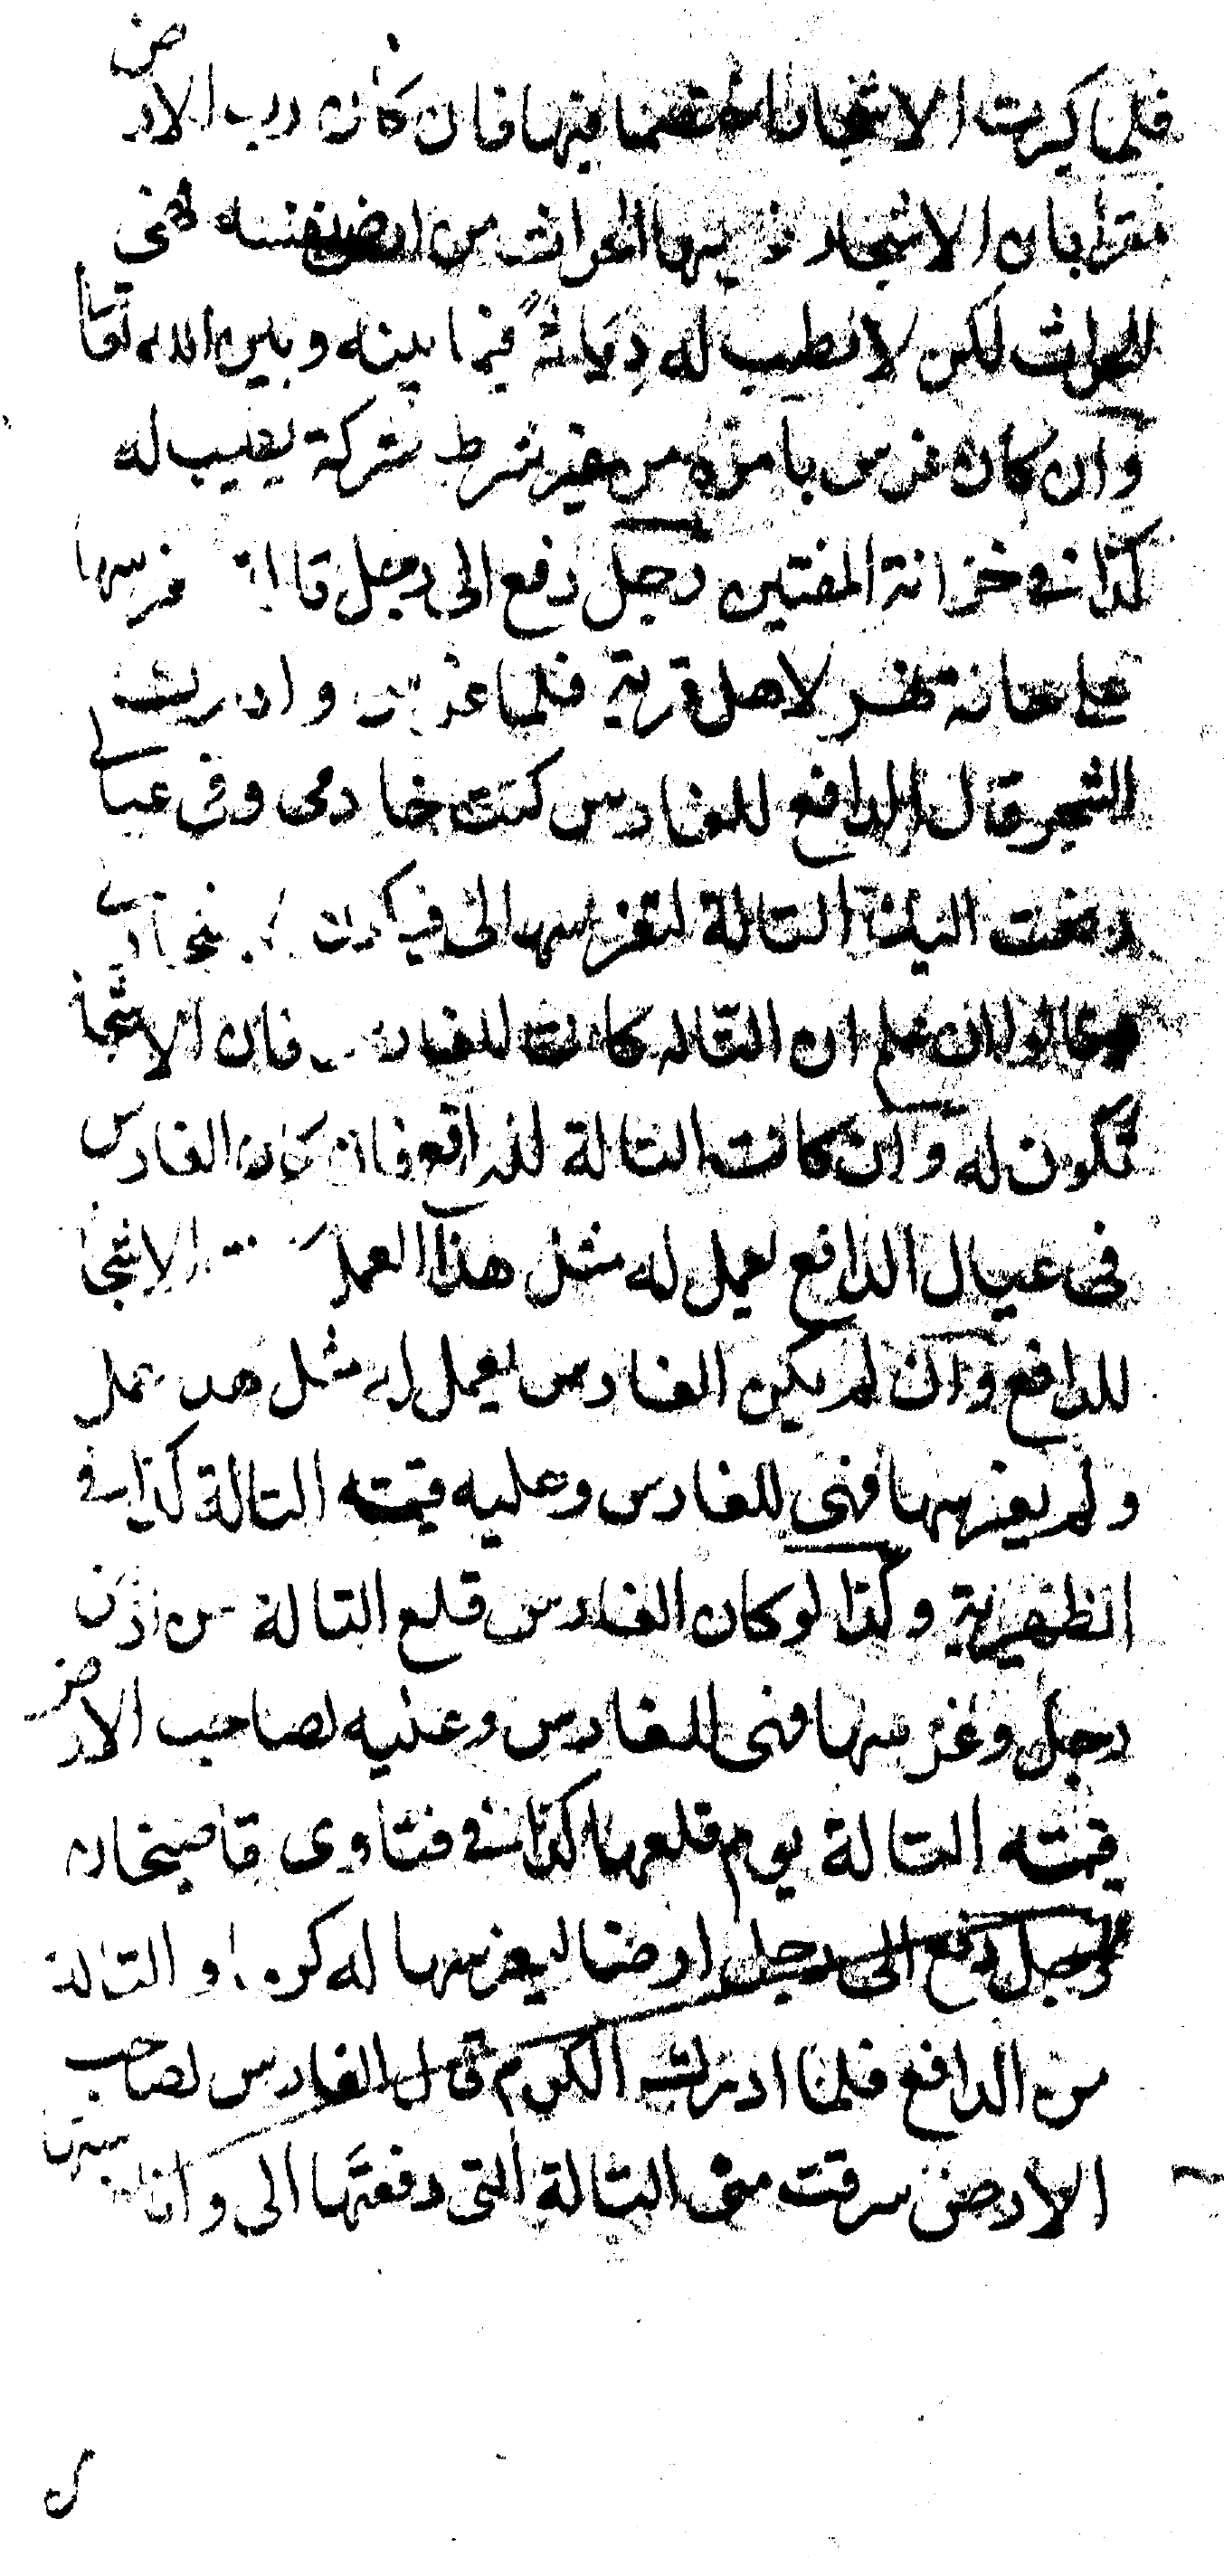 فلما كبرت الاشجار اختصما فيها فان كان رب الارض
مقرا بان الاشجار غرسها الحراث من ارض نفسه فهي
للحراث لكن لا تطيب له ديانة فيما بينه وبين الله تعالى
وان كان غرس بامره من غير شرط شركة يطيب له
كذا في خزانة المفتين رجل دفع الى رجل تالة غرسها
على حافة نهر لاهل قرية فلما غرست وادركت
الشجر قال الدافع للغارس كنت خادمي وفي عيالي
دفعت اليك التالة لتغرسها لي فيكون الشجار لي
قالوا ان علم ان التاله كانت للغارس فان الاشجار
تكون له وان كانت التالة للدافع فان كان الغارس
في عيال الدافع يعمل له مثل هذا العمل الاشجار
للدافع وان لم يكن الغارس يعمل له مثل هذا العمل
ولم يغرسها فهي للغارس وعليه قيمته التالة كذا في
الظهيرية وكذا لو كان الغارس قلع التالة من ارض
رجل وغرسها فهي للغارس وعليه لصاحب الارض
قيمته التالة يوم قلعها كذا في فتاوى قاضيخان
رجل دفع الى رجل ارضا ليغرسها له كرما والتالة
من الدافع فلما ادركت الكرم قال الغارس لصاحب
الارض سرقت مني التالة التي دفعتها الي وانا